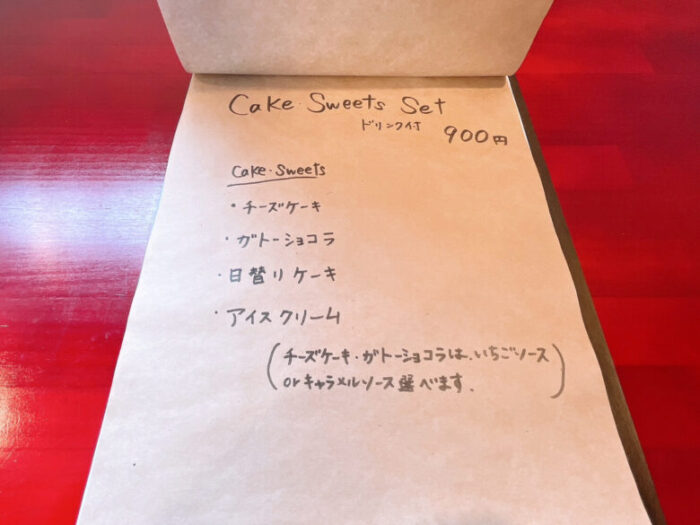 Cake・Sweets Set
ドリンク付
900円
Cake・Sweets
・チーズケーキ
・ガトーショコラ
・日替りケーキ
・アイスクリーム
(チーズケーキ・ガトーショコラは、いちごソース
orキャラメルソース選べます。)